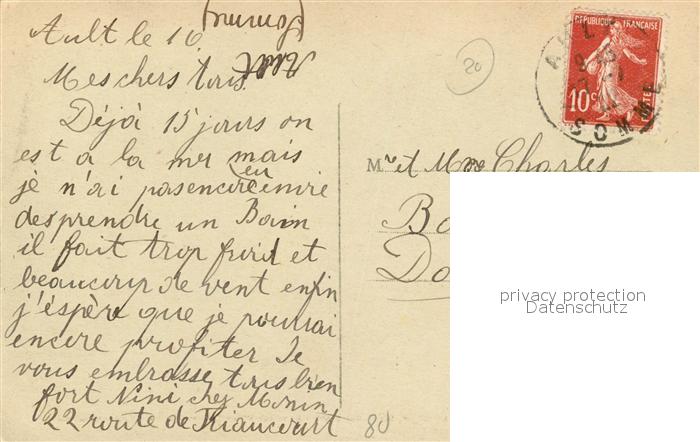 (Somme)
Ault le 16
Ault
Mes chers tous
Déjà 15 jours on
est a la mer mais
je n'ai pas encore eu envie
desprendre un Bain
il fait trop froid et
beaucoup de vent enfin
j'éspère que je pourrai
encore profiter Je
vous embrasse tous bien
fort Nini chez Monin
22 route de Friaucourt
20
REPUBLIQUE FRANÇAISE
10c
POSTES
AULT
SOMME
Mr et Mme Charles
Bo
Do
privacy protection
Datenschutz
80